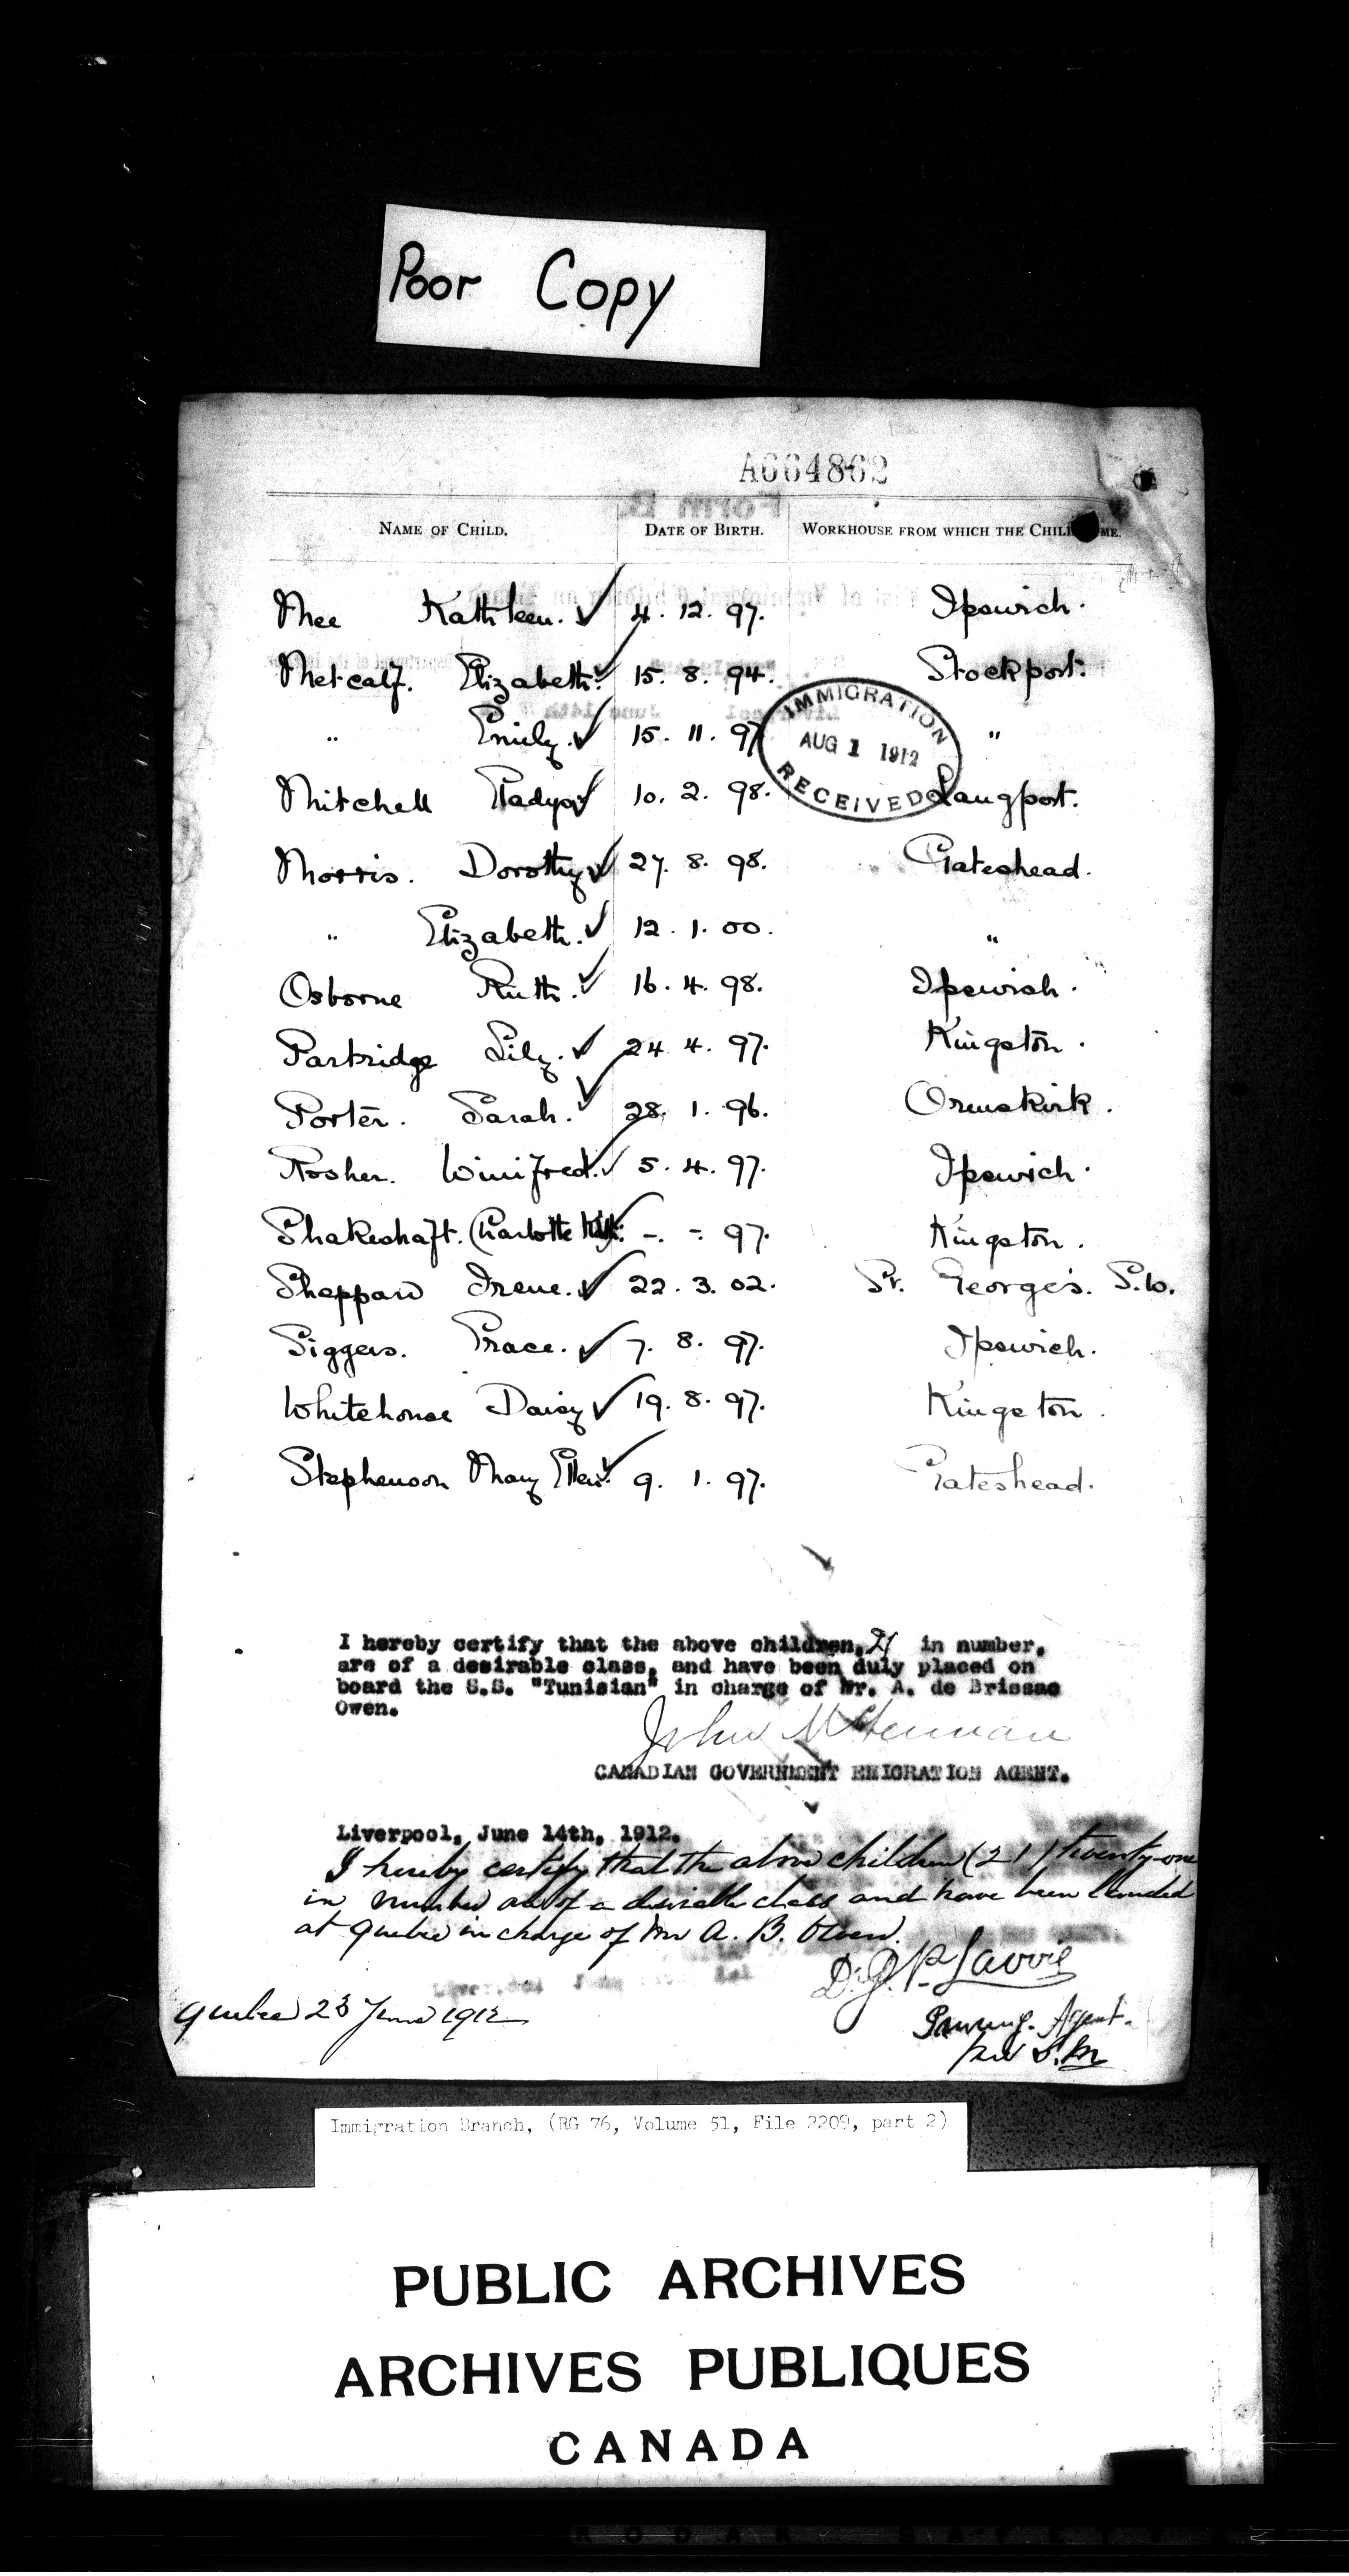 Poor Copy
A664862
NAME OF CHILD. DATE OF BIRTH. WORKHOUSE FROM WHICH THE CHILD ME.
Mee Kathleen. 4. 12. 97. Ipswich.
Metcalf. Elizabeth. 15. 8. 94. Stockport.
" Emily. 15. 11. 97 "
IMMIGRATION
AUG 1 1912
RECEIVED
Mitchell Gladys 10. 2. 98. Langport.
Morris. Dorothy 27. 8. 98. Gateshead.
" Elizabeth. 12. 1. 00. "
Osborne Ruth. 16. 4. 98. Ipswich.
Partridge Lily. 24 4. 97. Kingston.
Porter. Sarah. 28. 1. 96. Ormskirk.
Rosher. Winifred. 5. 4. 97. Ipswich.
Shakeshaft. Charlotte -. -. 97. Kingston.
Sheppard Irene. 22. 3. 02. St. George's. S.W.
Siggers. Grace. 7. 8. 97. Ipswich.
Whitehouse Daisy 19. 8. 97. Kingston.
Stephenson Mary Ellen. 9. 1. 97. Gateshead.
I hereby certify that the above children, 21 in number,
are of a desirable class, and have been duly placed on
board the S.S. "Tunisian" in charge of Mr. A. de Brissac
Owen.
John McLennan
CANADIAN GOVERNMENT EMIGRATION AGENT.
Liverpool, June 14th, 1912.
I hereby certify that the above children (21) twenty-one
in number are of a desirable class and have been landed
at Quebec in charge of Mr A. B. Owen.
D. J. P. Lavoie
Immig. Agent.
per S.M
Quebec 23 June 1912
Immigration Branch, (RG 76, Volume 51, File 2209, part 2)
PUBLIC ARCHIVES
ARCHIVES PUBLIQUES
CANADA